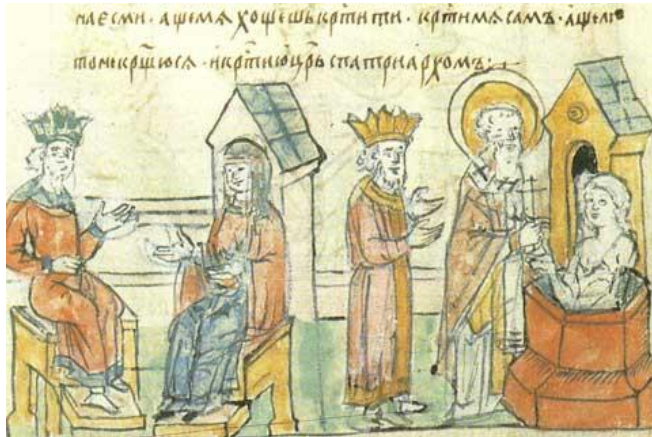 наесми · ащемѧ хощешь кр҃тити · кр҃тимѧ самъ · ащели
то некрщ҃юсѧ · икр҃тию цр҃ь спатриархомъ: